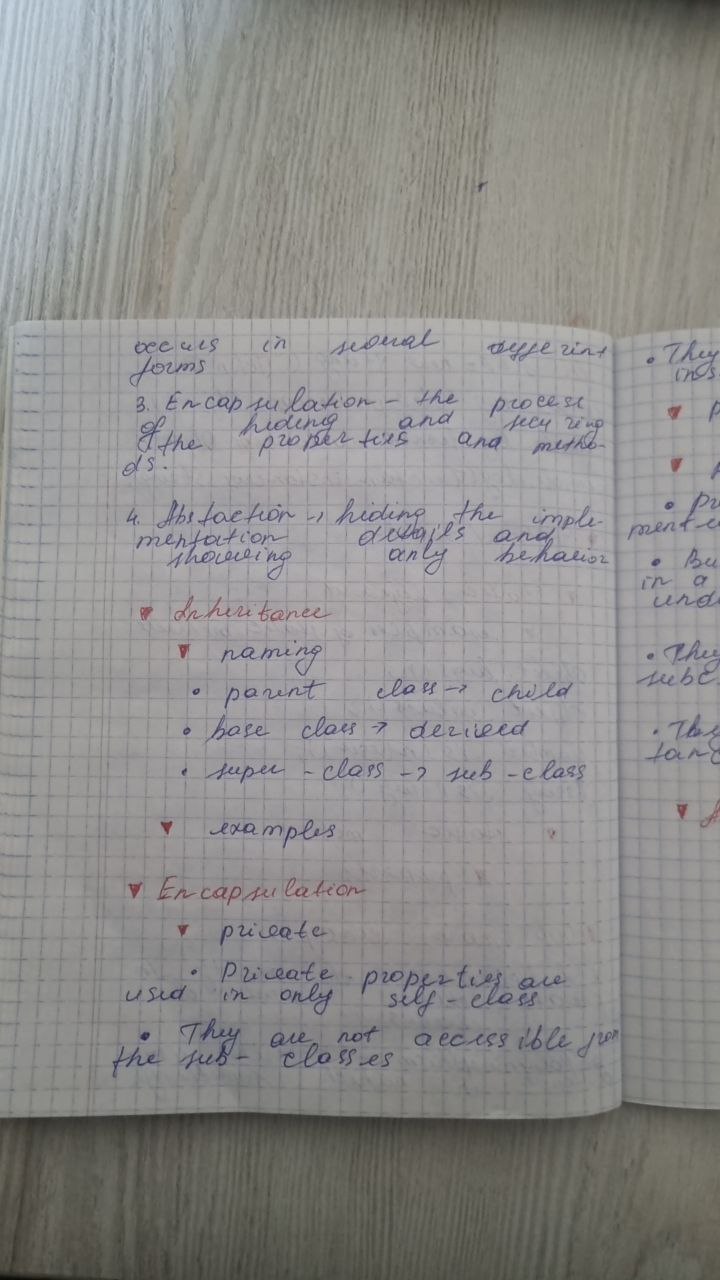 occurs in several different
forms
3. Encapsulation - the process
of hiding and securing
the properties and metho-
ds.
4. Abstaction → hiding the imple-
mentation details and
showing only behavior
▼ Inheritance
▼ naming
• parent class → child
• base class → derived
• super - class → sub - class
▼ examples
▼ Encapsulation
▼ private
• Private properties are
used in only self - class
• They are not accessible from
the sub - classes
• They
ins
▼ p
▼
• pr
ment
• Bu
in a
unde
• They
subc
• They
tanc
▼